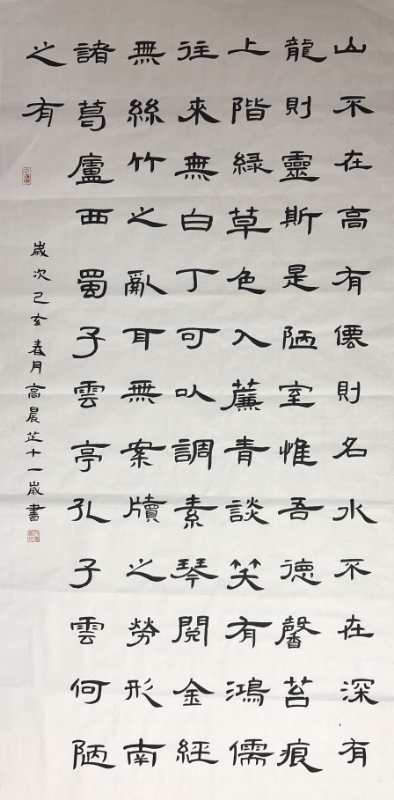 山不在高有僊則名水不在深有
龍則靈斯是陋室惟吾德馨苔痕
上階綠草色入簾青談笑有鴻儒
往來無白丁可以調素琴閱金經
無絲竹之亂耳無案牘之勞形南
諸葛廬西蜀子雲亭孔子雲何陋
之有
歲次己亥春月高晨芷十一歲書